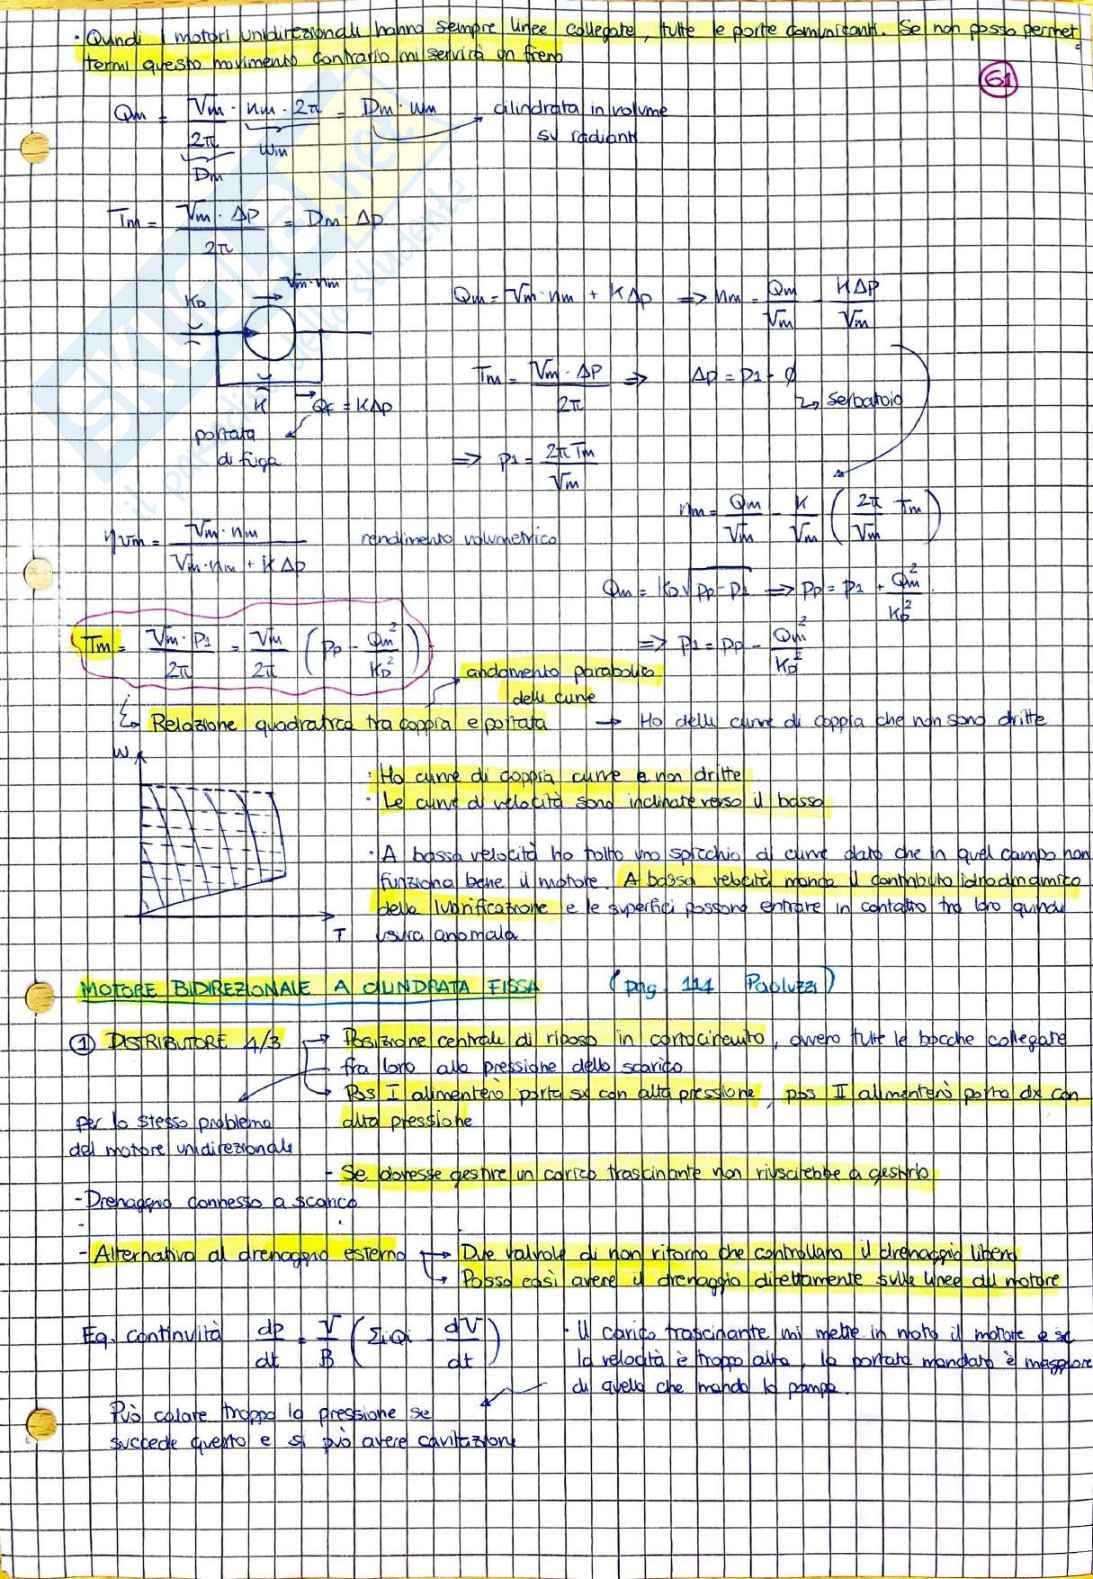 · Quindi i motori unidirezionali hanno sempre linee collegate, tutte le porte comunicanti. Se non posso permet
termi questo movimento contrario mi servirà un freno
61
Qm = Vm/2π · nm · 2π = Dm · ωm → cilindrata in volume
su radianti
Dm
ωm
Tm = Vm · Δp / 2π = Dm · Δp
Vm · nm
KD
Qm = Vm · nm + KΔp => nm = Qm/Vm - KΔp/Vm
Tm = Vm · Δp / 2π => Δp = p1 - 0
↳ serbatoio
K
QF = KΔp
portata
di fuga
=> p1 = 2π Tm / Vm
nm = Qm/Vm - K/Vm (2π/Vm Tm)
ηvm = Vm · nm / (Vm · nm + K Δp) rendimento volumetrico
Qm = KD √(pp - p1) => pp = p1 + Qm²/KD²
=> p1 = pp - Qm²/KD²
Tm = Vm · p1 / 2π = Vm/2π (pp - Qm²/KD²)
andamento parabolico
delle curve
↳ Relazione quadratica tra coppia e portata → Ho delle curve di coppia che non sono dritte
W
· Ho curve di coppia curve e non dritte
· Le curve di velocità sono inclinate verso il basso
· A bassa velocità ho tolto uno spicchio di curve dato che in quel campo non
funziona bene il motore. A bassa velocità manca il contributo idrodinamico
della lubrificazione e le superfici possono entrare in contatto tra loro quindi
T
usura anomala
MOTORE BIDIREZIONALE A CILINDRATA FISSA (pag. 111 Paoluzzi)
① DISTRIBUTORE 4/3 → Posizione centrale di riposo in cortocircuito, ovvero tutte le bocche collegate
fra loro alla pressione dello scarico
→ Pos I alimenterò porta sx con alta pressione, pos II alimenterò porta dx con
alta pressione
per lo stesso problema
del motore unidirezionale
- Se dovesse gestire un carico trascinante non riuscirebbe a gestirlo
- Drenaggio connesso a scarico
- Alternativa al drenaggio esterno → Due valvole di non ritorno che controllano il drenaggio libero
↳ Posso così avere il drenaggio direttamente sulle linee del motore
Eq. continuità dp/dt = V/B (ΣiQi - dV/dt)
· Il carico trascinante mi mette in moto il motore e se
la velocità è troppo alta, la portata mandata è maggiore
di quella che manda la pompa.
Può calare troppo la pressione se
succede questo e si può avere cavitazione